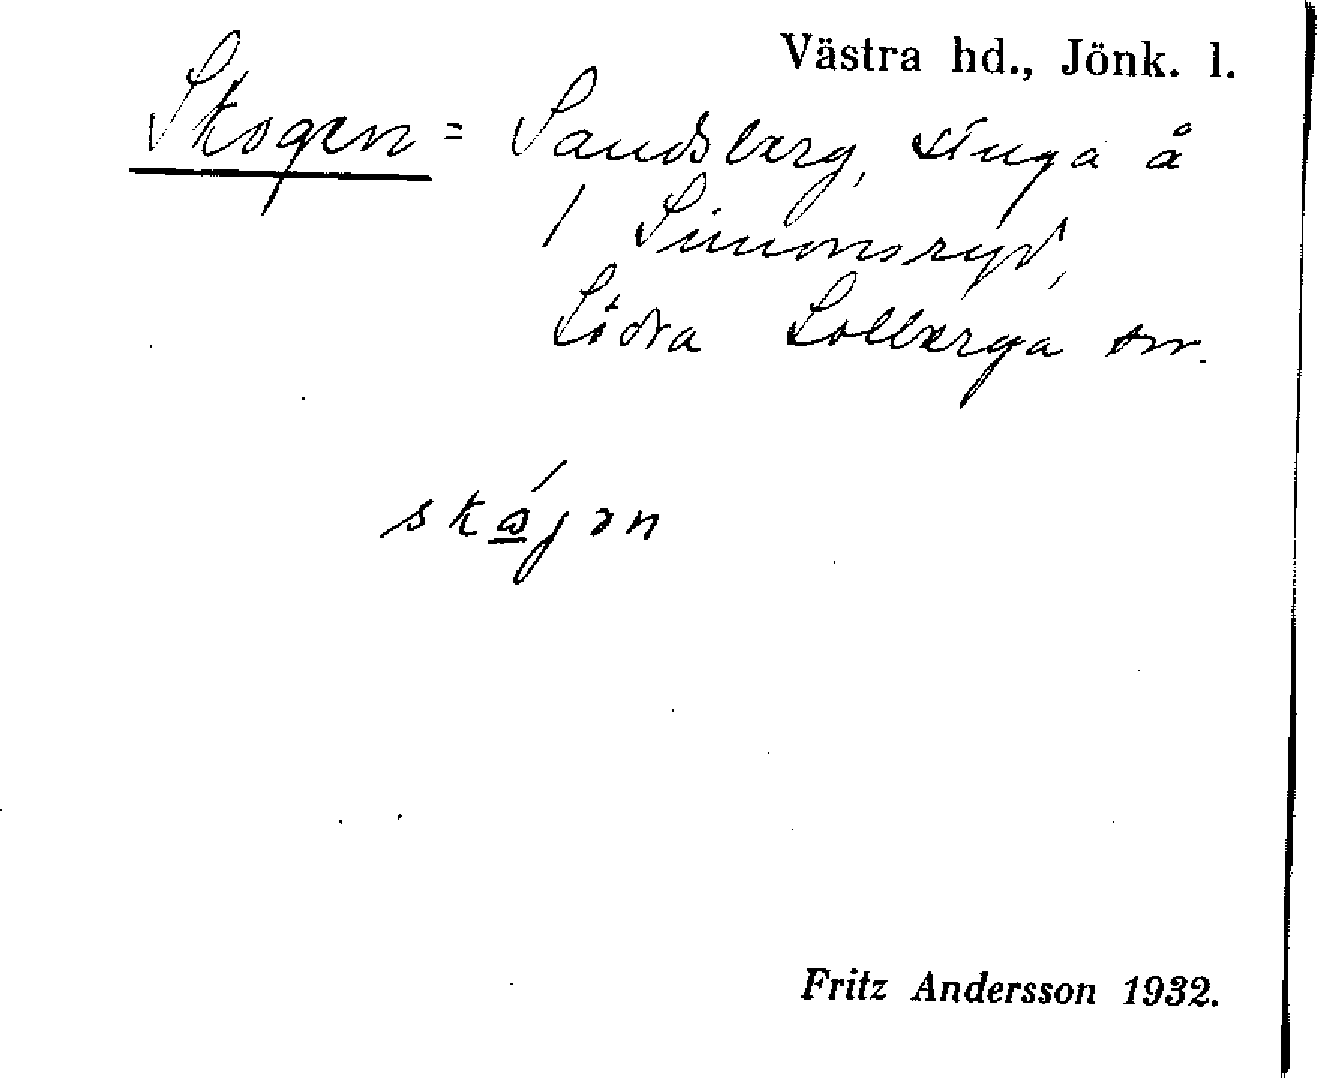 Västra hd., Jönk. l.
Skogen = Sandsberg, stuga å
1 Simonsryd,
Södra Solberga sn.
skógən
Fritz Andersson 1932.